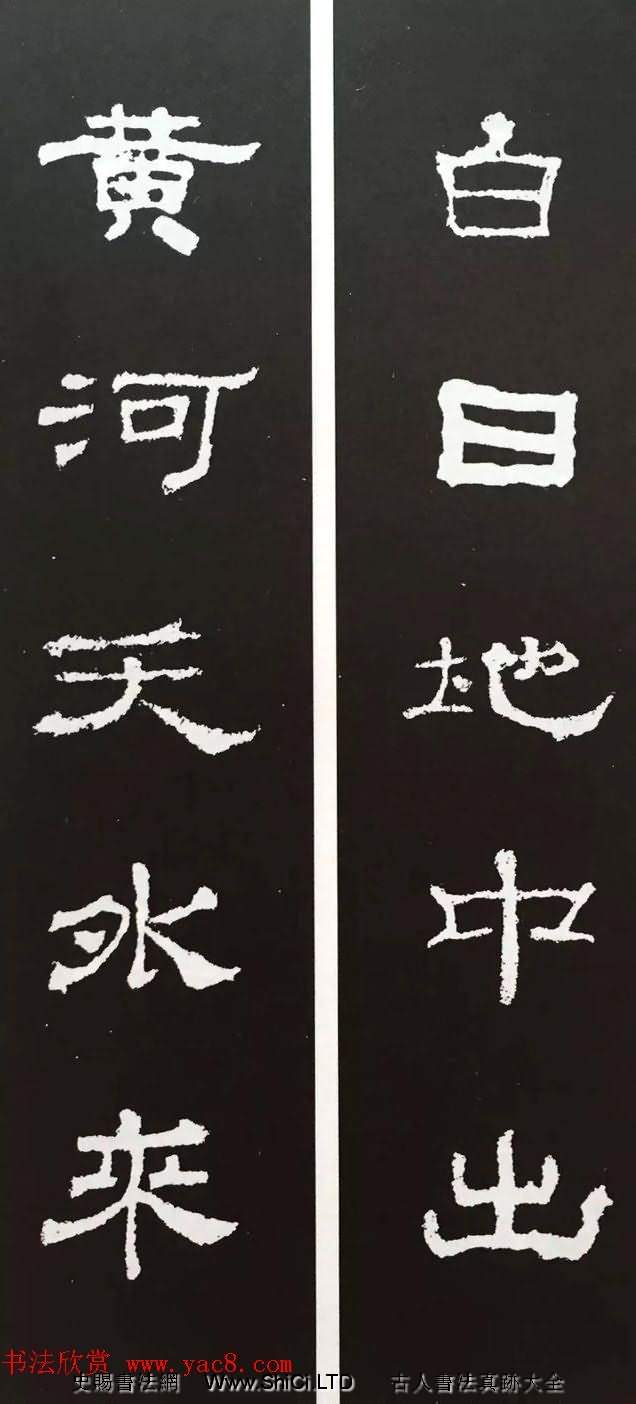 白日地中出
黄河天外来
书法欣赏 www.yac8.com
史賜書法網 Www.ShiCi.LTD 古人書法真跡大全